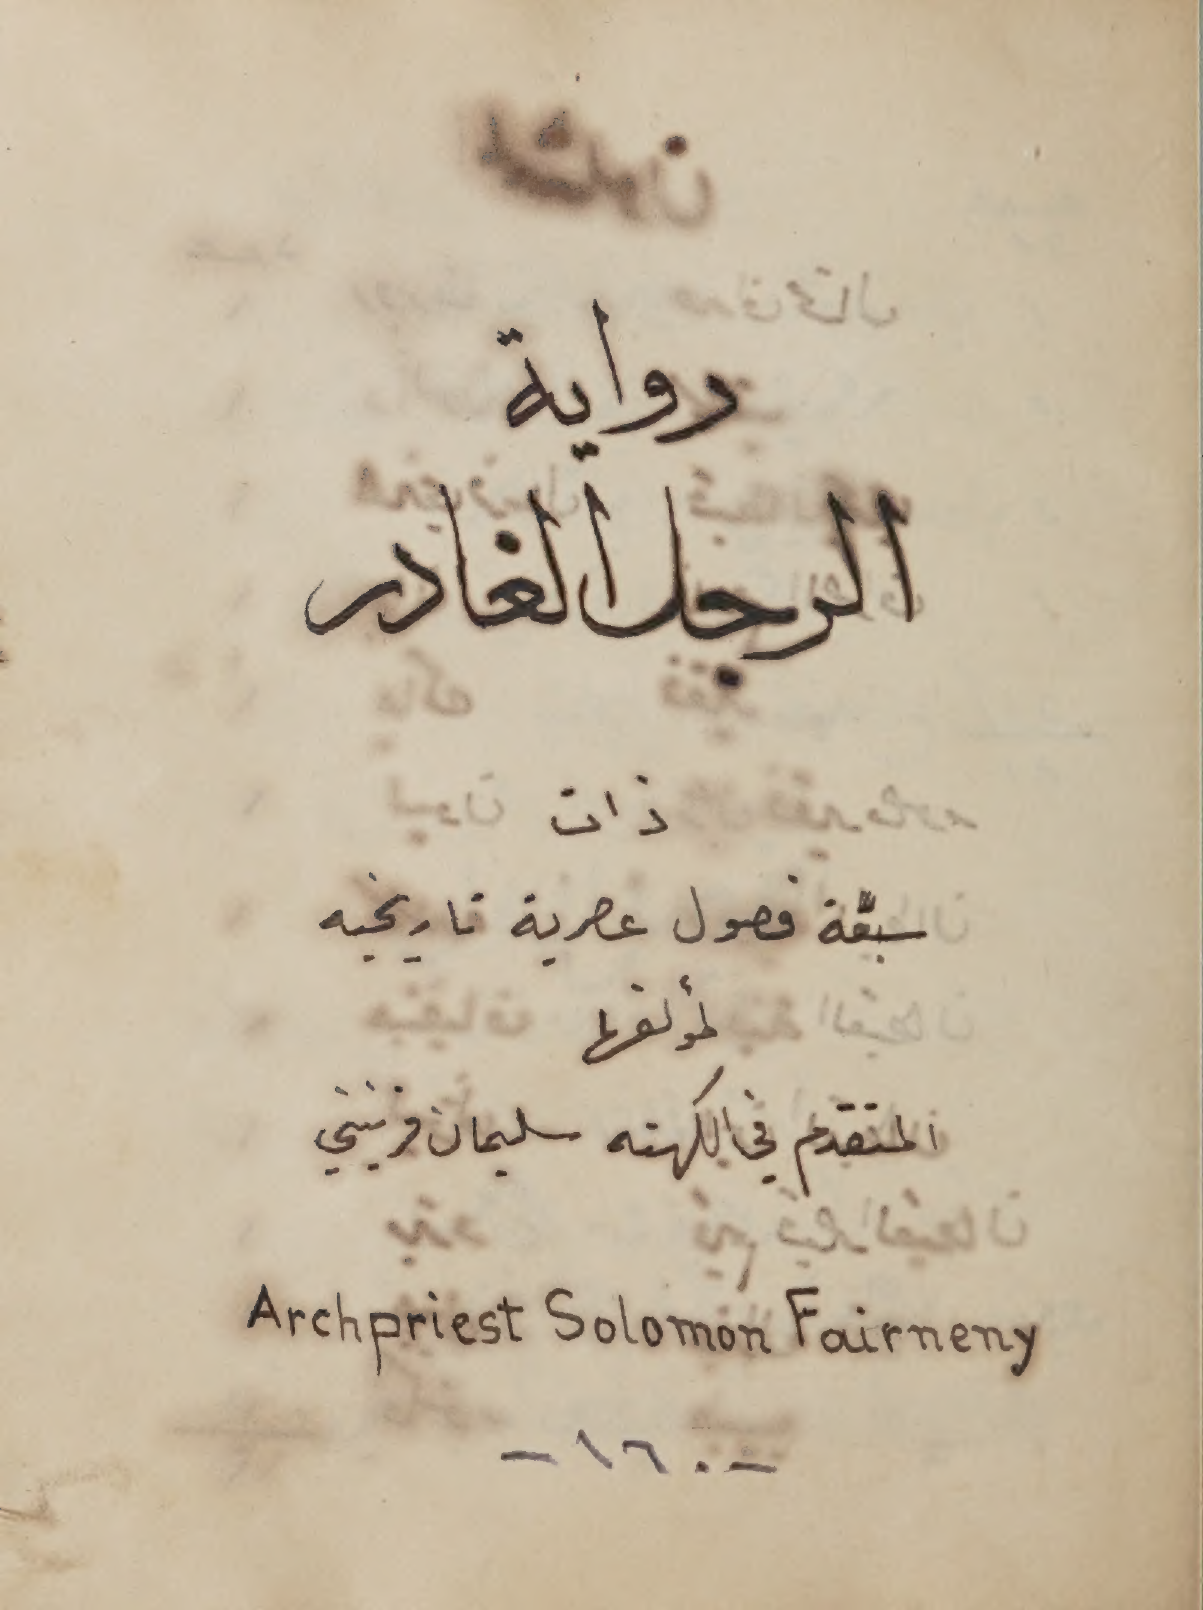 رواية
الرجل الغادر
ذات
سبعة فصول عصرية تاريخيه
لمؤلفها
المتقدم في الكهنه سليمان فرنيني
Archpriest Solomon Fairneny
- ١٦٠ -